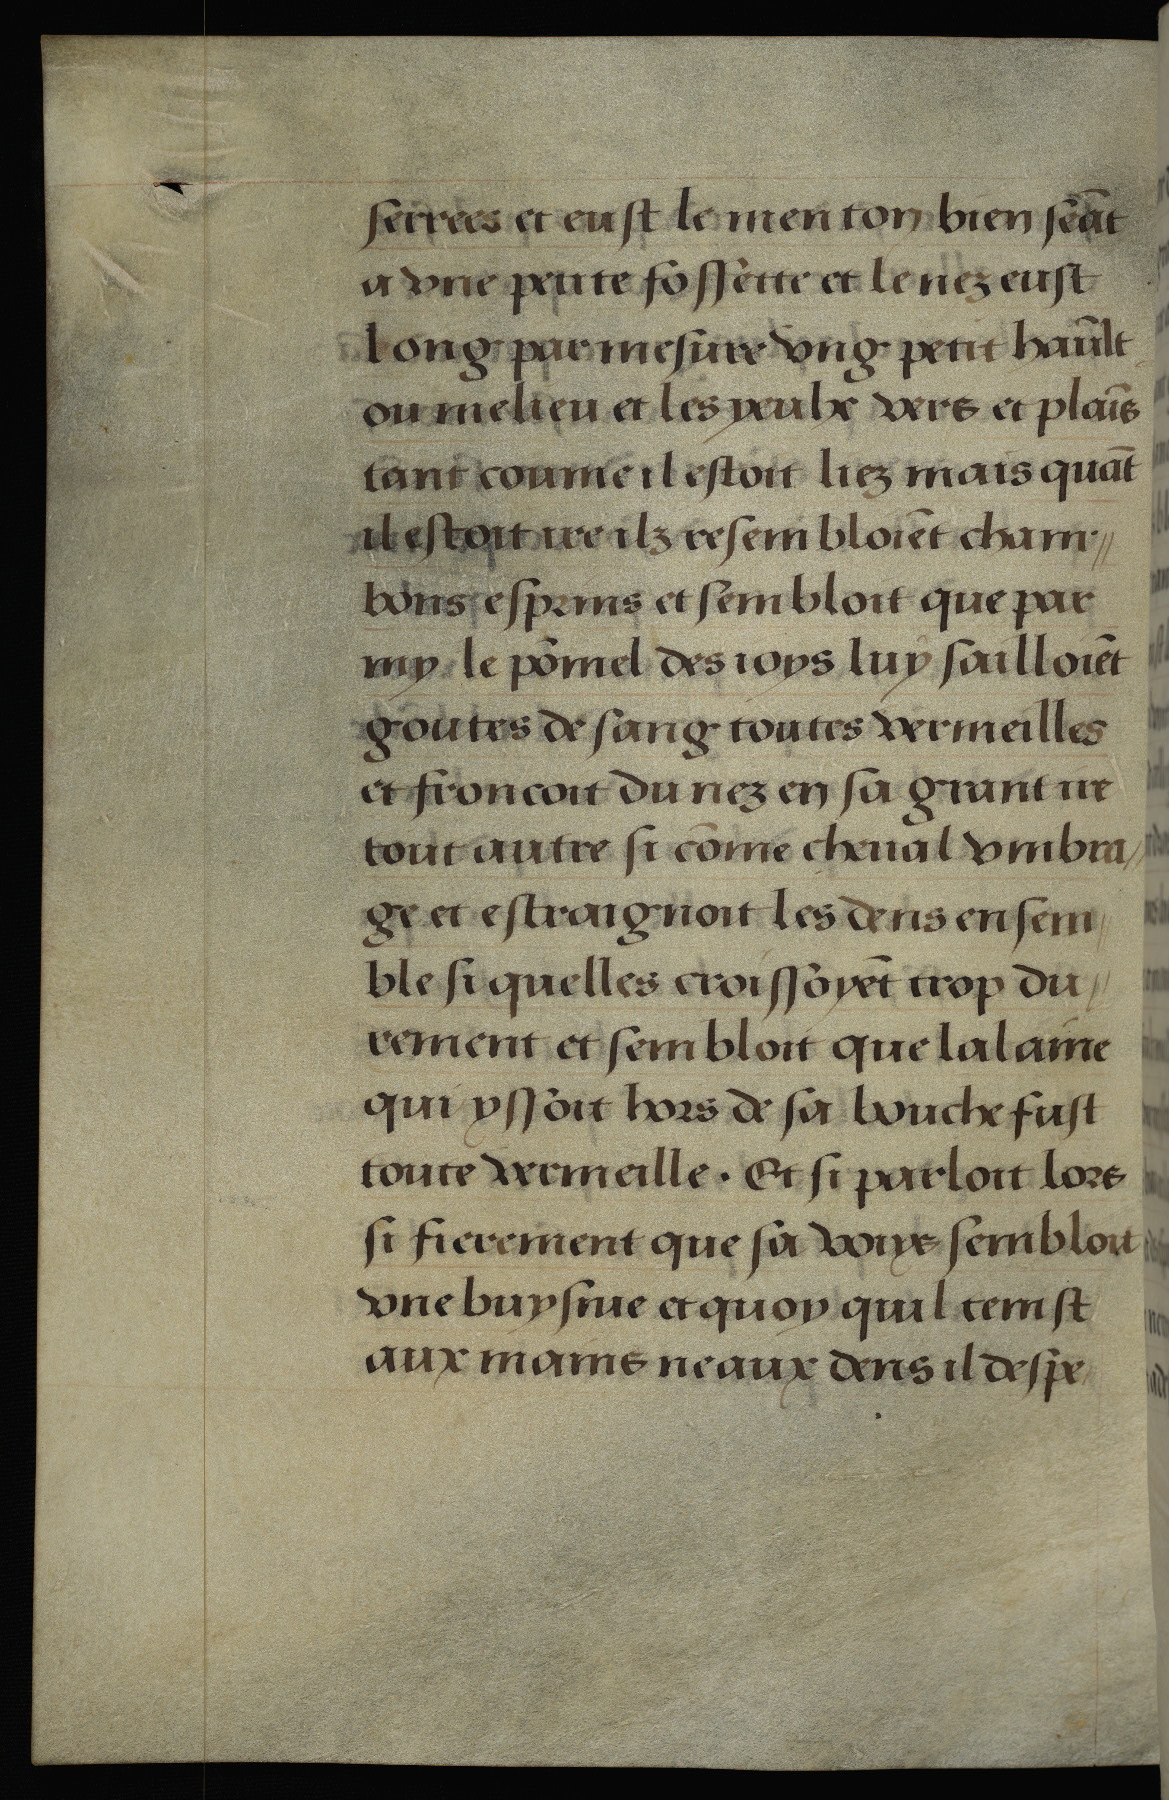 serrees et eust le menton bien seāt
a vne petite fossette et le nez eust
long par mesure vng petit hault
ou melieu et les yeulx vers et plaīs
tant coume il estoit liez mais quāt
il estoit ire ilz resembloiēt cham//
bons esprins et sembloit que par
my le pōmel des ioys luy sailloiēt
goutes de sang toutes vermeilles
et froncoit du nez en sa grant ire
tout autre si cōme cheual vmbra//
ge et estraignoit les dens ensem//
ble si quelles croissoyēt trop du//
rement et sembloit que lalaine
qui yssoit hors de sa bouche fust
toute vermeille. Et si parloit lors
si fierement que sa voix sembloit
vne buysine et quoy quil temist
aux mains ne aux dens il despe